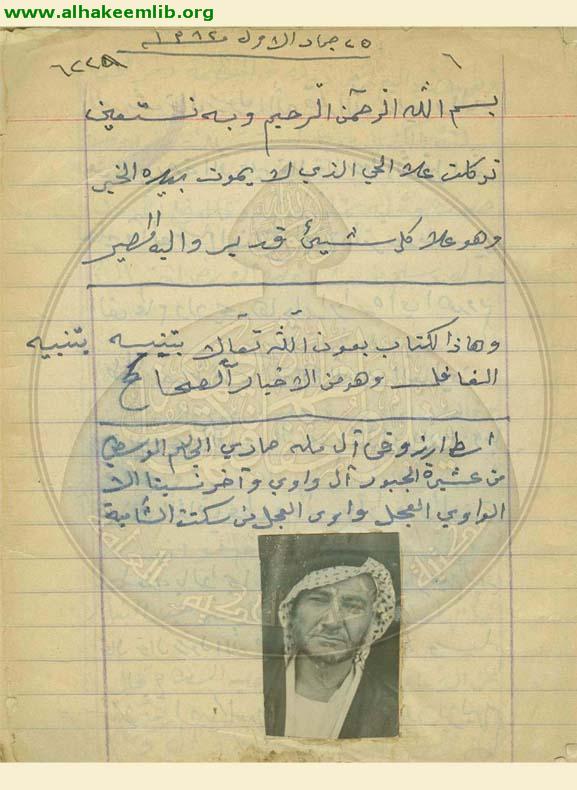 www.alhakeemlib.org
٢٥ جماد الاول ١٣٨٢م
٦٢٢٥٨
٦
بسم الله الرحمن الرحيم وبه نستعين
توكلت علا الحي الذي لا يموت بيده الخير
وهو علا كل شيئ قدير واليه المصير
وهاذا لكتاب بعون الله تعالا بتنبيه بتنبيه
الغافل وهو من الاخبار الصحاح
آل مله حمادي
من عشيرة الجبور آل واوي وآخر نسبنا الا
الواوي العجل واوي العجل من سكنت الشامية